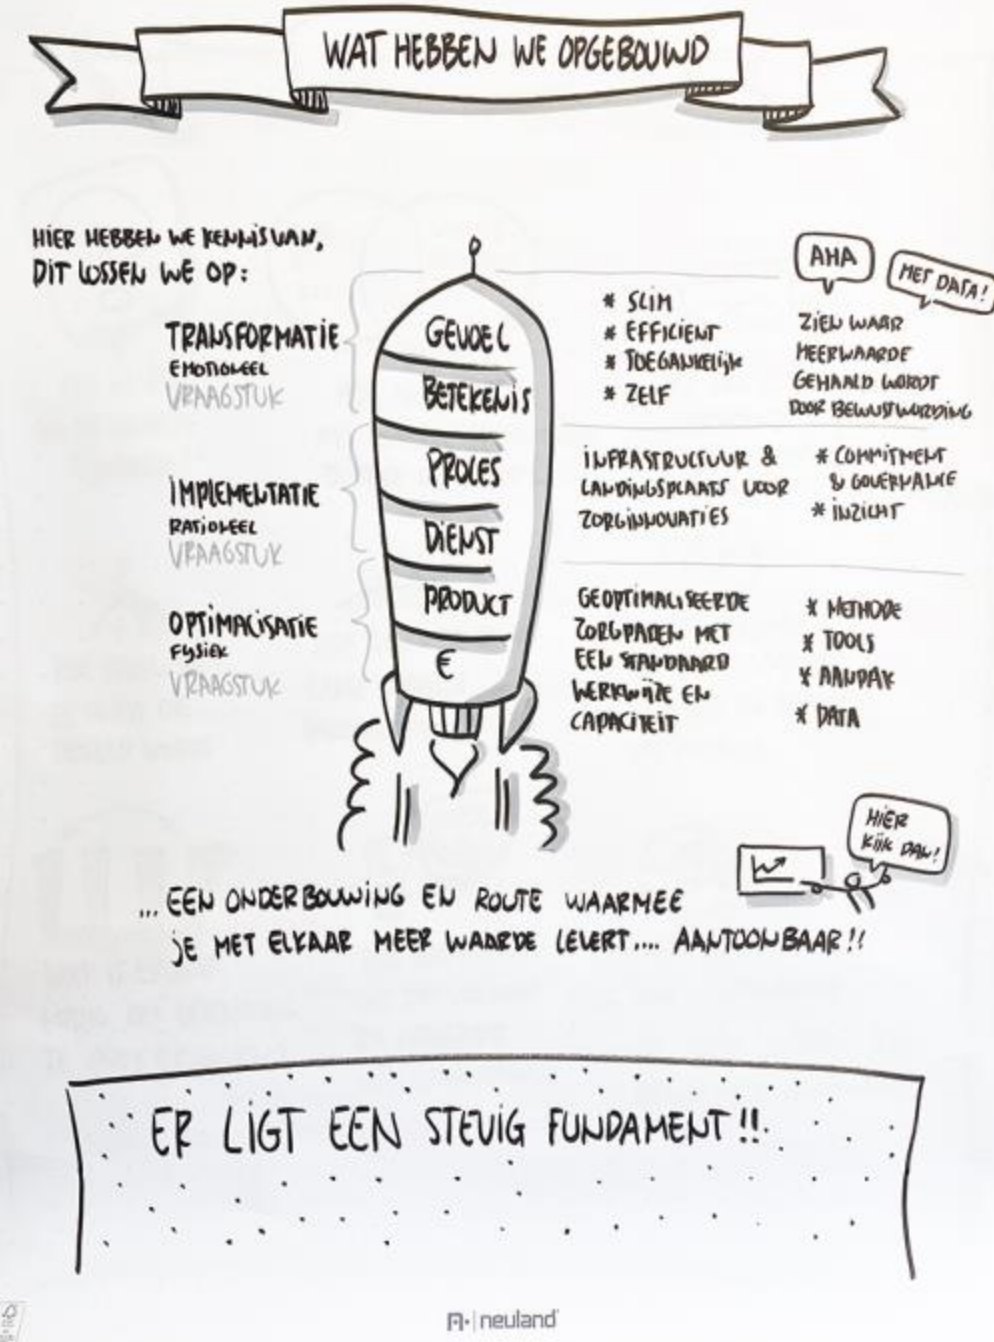 WAT HEBBEN WE OPGEBOUWD
HIER HEBBEN WE KENNIS VAN,
DIT LOSSEN WE OP:
TRANSFORMATIE
EMOTIONEEL
VRAAGSTUK
IMPLEMENTATIE
RATIONEEL
VRAAGSTUK
OPTIMALISATIE
FYSIEK
VRAAGSTUK
GEVOEL
BETEKENIS
PROCES
DIENST
PRODUCT
€
* SLIM
* EFFICIENT
* TOEGANKELIJK
* ZELF
AHA
MET DATA!
ZIEN WAAR
MEERWAARDE
GEHAALD WORDT
DOOR BEWUSTWORDING
INFRASTRUCTUUR &
LANDINGSPLAATS VOOR
ZORGINNOVATIES
* COMMITMENT
& GOVERNANCE
* INZICHT
GEOPTIMALISEERDE
ZORGPADEN MET
EEN STANDAARD
WERKWIJZE EN
CAPACITEIT
* METHODE
* TOOLS
* AANPAK
* DATA
HIER
KIJK DAN!
... EEN ONDERBOUWING EN ROUTE WAARMEE
JE MET ELKAAR MEER WAARDE LEVERT.... AANTOONBAAR!!
ER LIGT EEN STEVIG FUNDAMENT!!
neuland